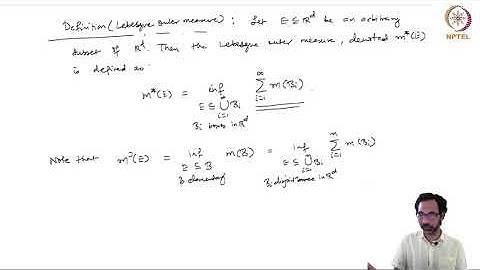 Definition (Lebesgue outer measure) : Let E ⊆ ℝ^d be an arbitrary
subset of ℝ^d. Then the Lebesgue outer measure, denoted m*(E)
is defined as:
m*(E) = inf_{E ⊆ ⋃_{i=1}^∞ B_i, B_i boxes in ℝ^d} ∑_{i=1}^∞ m(B_i).
Note that m^J(E) = inf_{E ⊆ B, B elementary} m(B) = inf_{E ⊆ ⋃_{i=1}^n B_i, B_i disjoint boxes in ℝ^d} ∑_{i=1}^n m(B_i)
NPTEL